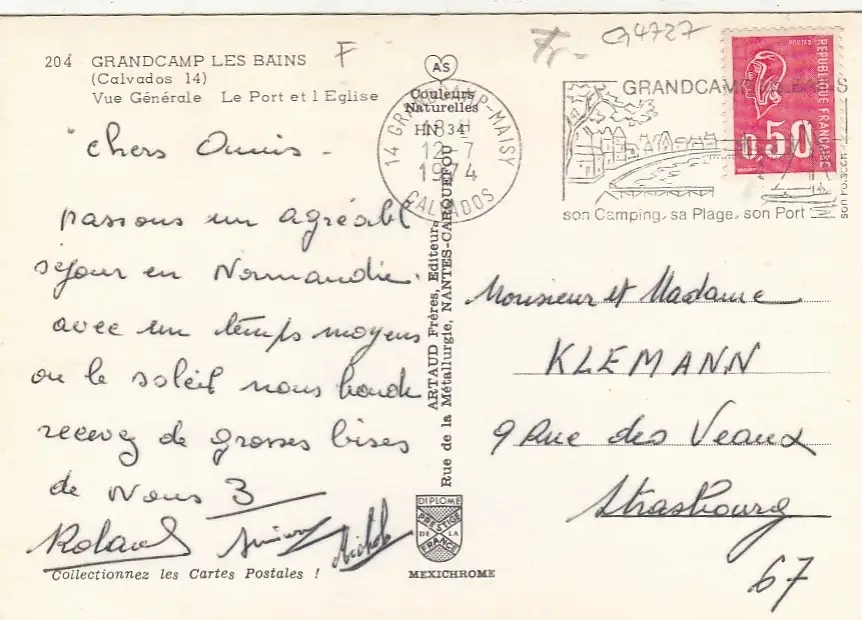 204 GRANDCAMP LES BAINS
(Calvados 14)
Vue Générale Le Port et l Eglise
F
Fr
G4727
AS
Couleurs
Naturelles
HN 34
14 GRANDCAMP-MAISY
18 H
12-7
1974
CALVADOS
GRANDCAMP
son Camping, sa Plage, son Port
POSTES
REPUBLIQUE FRANCAISE
0,50
Chers Amis -
passons un agréabl
séjour en Normandie.
avec un temps moyens
ou le soleil nous boude
recevez de grosses bises
de Nous 3
Roland
Michele
Collectionnez les Cartes Postales !
ARTAUD Frères, Editeurs
Rue de la Métallurgie, NANTES-CARQUEFOU
DIPLOME
PRESTIGE
DE LA
FRANCE
MEXICHROME
Monsieur et Madame
KLEMANN
9 Rue des Veaux
Strasbourg
67